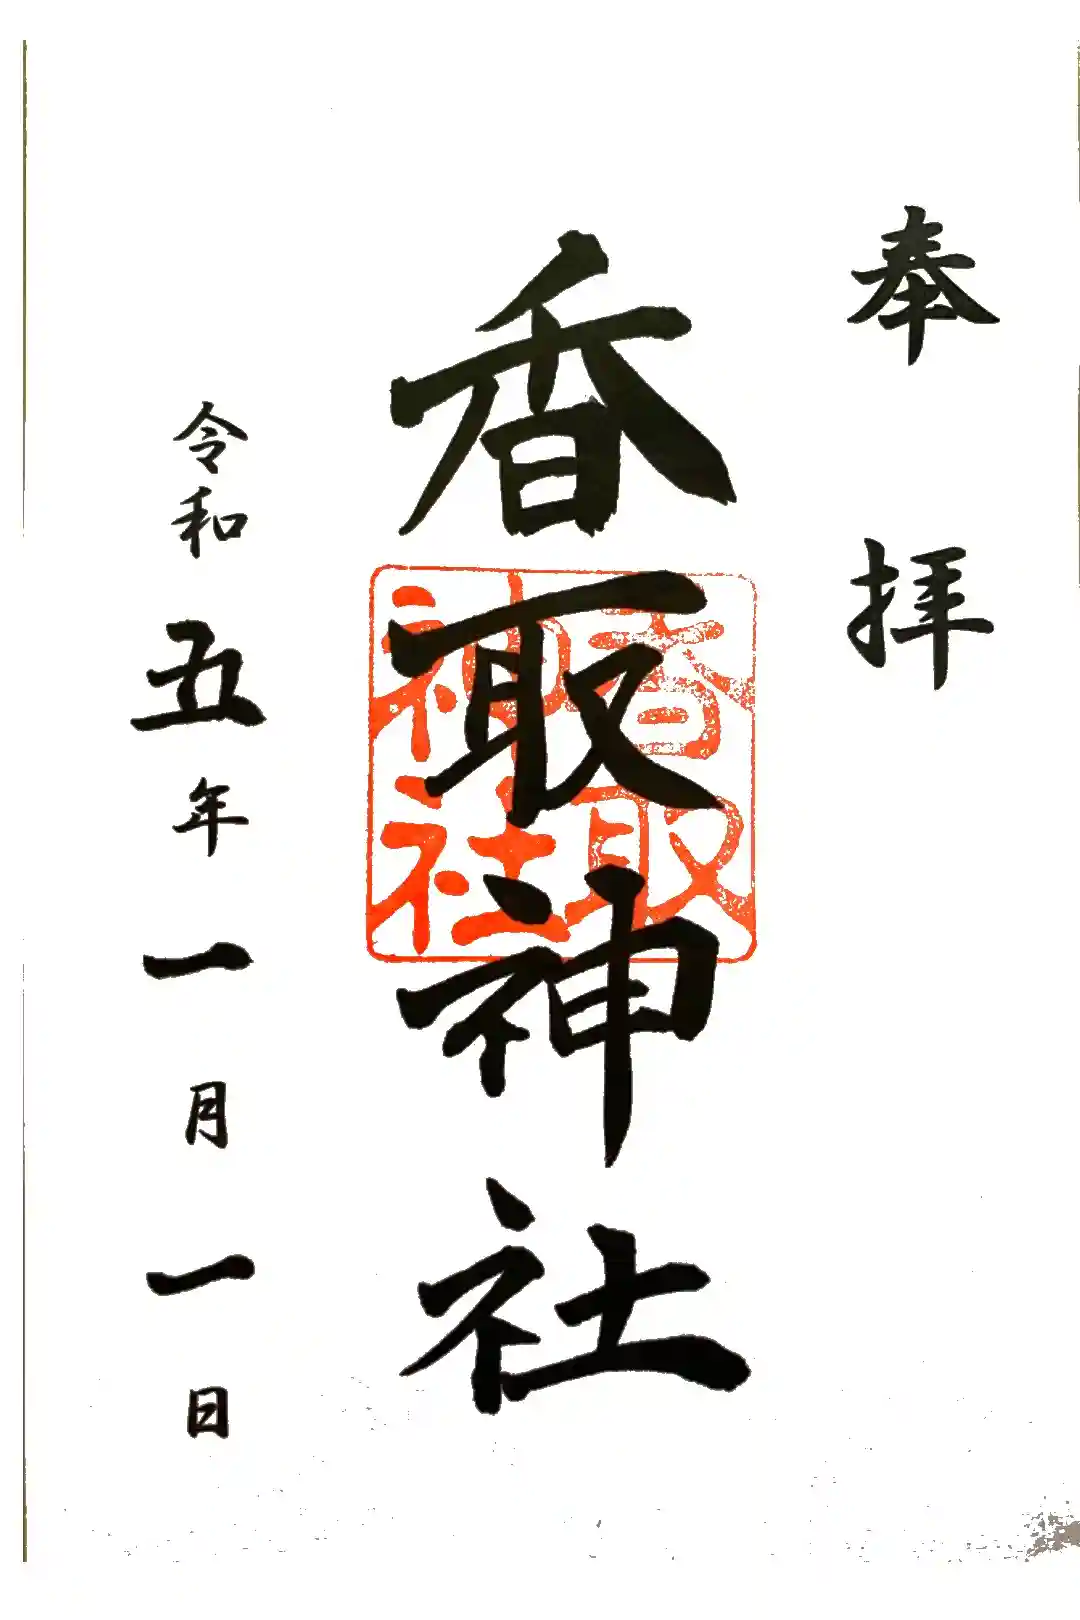 奉拝
香取神社
香取
神社
令和五年一月一日